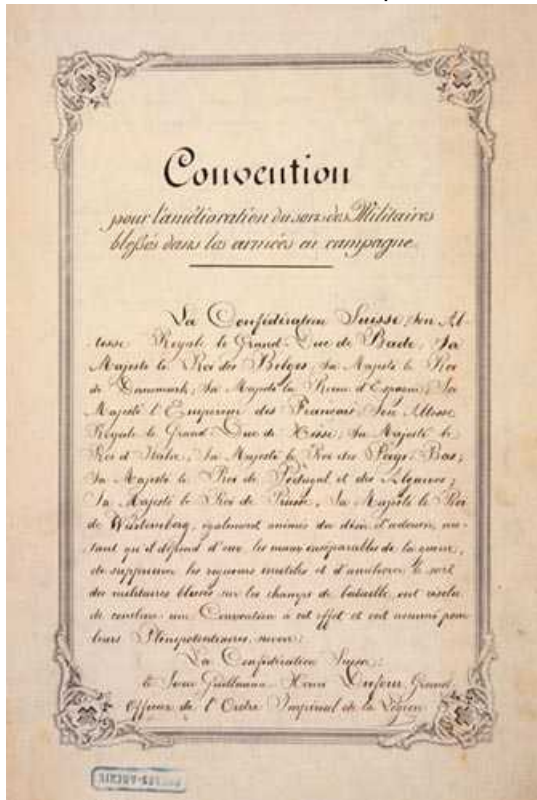 Convention
pour l'amélioration du sort des Militaires
blessés dans les armées en campagne
La Confédération Suisse; Son Al-
tesse Royale le Grand-Duc de Bade; Sa
Majesté le Roi des Belges; Sa Majesté le Roi
de Danemark; Sa Majesté la Reine d'Espagne; Sa
Majesté l'Empereur des Français; Son Altesse
Royale le Grand-Duc de Hesse; Sa Majesté le
Roi d'Italie; Sa Majesté le Roi des Pays-Bas;
Sa Majesté le Roi de Portugal et des Algarves;
Sa Majesté le Roi de Prusse, Sa Majesté le Roi
de Würtemberg, également animés du désir d'adoucir, au-
tant qu'il dépend d'eux, les maux inséparables de la guerre,
de supprimer les rigueurs inutiles et d'améliorer le sort
des militaires blessés sur les champs de bataille, ont résolu
de conclure une Convention à cet effet et ont nommé pour
leurs Plénipotentiaires, savoir:
La Confédération Suisse:
le Sieur Guillaume-Henri Dufour, Grand
Officier de l'Ordre Impérial de la Légion